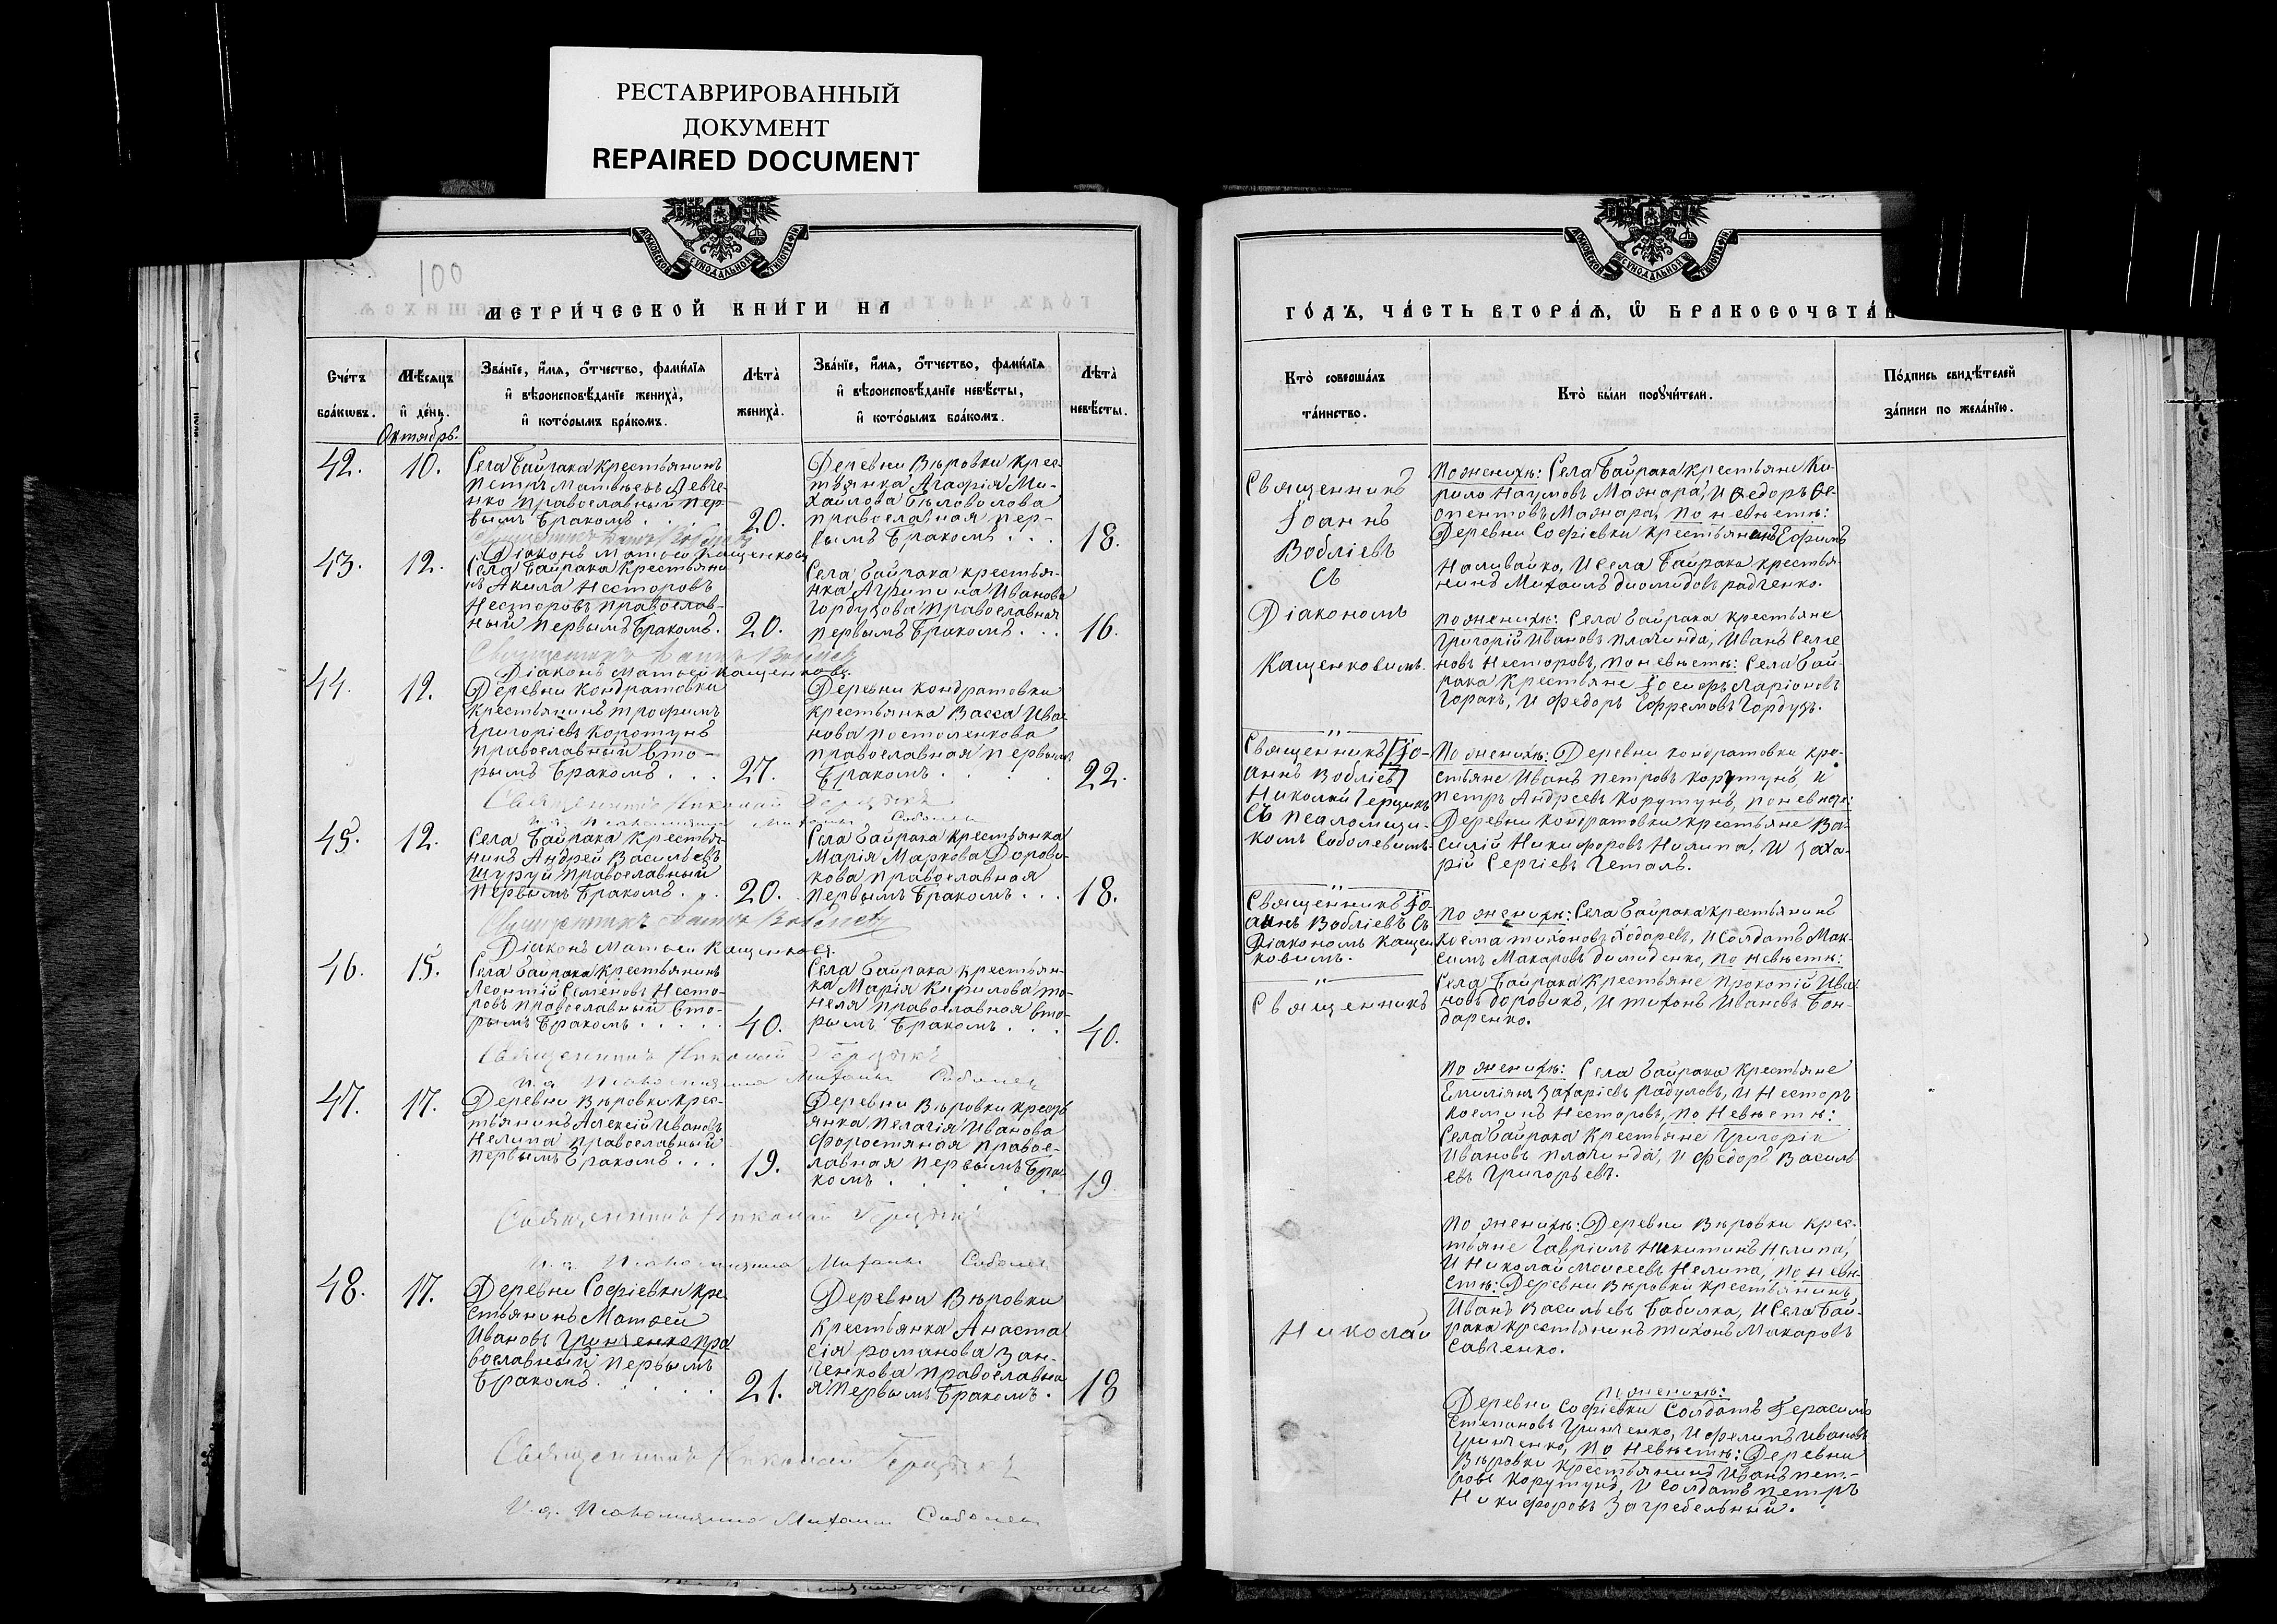 РЕСТАВРИРОВАННЫЙ
ДОКУМЕНТ
REPAIRED DOCUMENT
МОСКОВСКОЙ СѴНОДАЛЬНОЙ ТИПОГРАФІИ
100
МЕТРИ́ЧЕСКОЙ КНИ́ГИ НА
Сче́тъ бра́кѡвъ.
Мѣ́сяцъ и де́нь.
Зва́нїе, и҆́мѧ, ѻ҆́тчество, фами́лїѧ
и҆ вѣроисповѣ́данїе жениха̀,
и҆ кото́рымъ бра́комъ.
Лѣта̀ жениха̀.
Зва́нїе, и҆́мѧ, ѻ҆́тчество, фами́лїѧ
и҆ вѣроисповѣ́данїе невѣ́сты,
и҆ кото́рымъ бра́комъ.
Лѣта̀ невѣ́сты.
Октябрь.
42.
10.
Села Байрака крестьянинъ
Петръ Матвѣевъ Левче-
нко православный пер-
вымъ бракомъ
20.
Деревни Вѣровки крес-
тьянка Агафія Ми-
хайлова Бѣловолова
православная пер-
вымъ бракомъ . . .
18.
Діаконъ Матѳей Кащенковъ
43.
12.
Села Байрака крестьяни
нъ Акила Несторовъ
Несторовъ православ-
ный первымъ бракомъ.
20.
Села Байрака крестья-
нка Агрипина Иванова
Гордузова православная
первымъ бракомъ . . .
16.
Діаконъ Матѳей Кащенковъ.
44.
12.
Деревни Кондратовки
крестьянинъ Трофимъ
Григоріевъ Коротунъ
православный вто-
рымъ бракомъ . . .
27.
Деревни Кондратовки
крестьянка Васса Ива
нова Постоленкова
православная первымъ
бракомъ .
22.
Священникъ Николай Герцыкъ
45.
12.
Села Байрака крестья-
нинъ Андрей Васильевъ
Шуруй православный
первымъ бракомъ . .
20.
Села Байрака крестьянка
Марія Маркова Дорови-
кова православная
первымъ бракомъ . . .
18.
Діаконъ Матѳей Кащенковъ.
46.
15.
Села Байрака крестьянинъ
Леонтій Семеновъ Несто-
ровъ православный вто-
рымъ бракомъ . . . . .
40.
Села Байрака крестьян-
ка Марія Кирилова То-
неля православная вто-
рымъ бракомъ . . .
40.
Священникъ Николай Герцыкъ
и. д. Псаломщика Михаилъ Соболев
47.
17.
Деревни Вѣровки крес-
тьянинъ Алексій Ивановъ
Нелипа православный
первымъ бракомъ . . .
19.
Деревни Вѣровки кресть
янка Пелагія Иванова
Форостяная правос-
лавная первымъ бра-
комъ . . . . .
19
Священникъ Николай Герцыкъ
и. д. Псаломщика Михаилъ Соболев
48.
17.
Деревни Софіевки кре
стьянинъ Матѳей
Ивановъ Гринченко пра
вославный первымъ
бракомъ. . . . .
21.
Деревни Вѣровки
крестьянка Анаста
сія Романова Зан-
ченкова православна
я первымъ бракомъ .
18
Священникъ Николай Герцыкъ
И. д. Псаломщика Михаилъ Соболев
МОСКОВСКОЙ СѴНОДАЛЬНОЙ ТИПОГРАФІИ
ГО́ДЪ, ЧА́СТЬ ВТОРА́Ѧ, Ѡ҆ БРАКОСОЧЕТА́
Кто̀ соверша́лъ
та́инство.
Кто̀ бы́ли порꙋчи́тели.
По́дпись свидѣ́телей
за́писи по жела́нїю.
Священникъ
Іоаннъ
Вобліевъ
Съ
Діакономъ
Кащенковимъ.
По женихѣ: Села Байрака крестьяне Ки-
рило Наумовъ Мажара, и Ѳедоръ Ѳе-
опентовъ Мажара, по невѣстѣ:
Деревни Софіевки крестьянинъ Ефимъ
Наливайко, и Села Байрака крестья
нинъ Михаилъ Диомидовъ Радченко.
По женихѣ: Села Байрака крестьяне
Григорій Ивановъ Плачинда, Иванъ Семе
новъ Несторовъ, по невѣстѣ: Села Бай-
рака крестьяне Іосифъ Ларіоновъ
Горакъ, и Федоръ Ефремовъ Гордузъ.
Священникъ [Іо-
аннъ Вобліевъ]
Николай Герцыкъ
съ псаломщи-
комъ Соболевымъ
По женихѣ: Деревни Кондратовки кре-
стьяне Иванъ Петровъ Корутунъ, и
Петръ Андреевъ Корутунъ, по невѣстѣ:
Деревни Кондратовки крестьяне Ва-
силій Никифоровъ Нелипа, и Заха-
рій Сергіевъ Геталъ.
Священникъ Іо-
аннъ Вобліевъ съ
Діакономъ Кащен
ковимъ.
По женихѣ: Села Байрака крестьянинъ
Косма Тихоновъ Ходаревъ, и Солдатъ Мак-
симъ Макаровъ Димиденко, по невѣстѣ:
Села Байрака крестьяне Прокопій Ива
новъ Доровикъ, и Тихонъ Ивановъ Бон-
даренко.
Священникъ
По женихѣ: Села Байрака крестьяне
Емиліянъ Захаріевъ Радуловъ, и Несторъ
Косминъ Несторовъ, по невѣстѣ:
Села Байрака крестьяне Григорій
Ивановъ Плачинда, и Федоръ Василь
евъ Григорьевъ.
По женихѣ: Деревни Вѣровки крес-
тьяне Гавріилъ Никитинъ Нелипа,
и Николай Моисеевъ Нелипа, по невѣ-
стѣ: Деревни Вѣровки крестьянинъ
Иванъ Васильевъ Бабилка, и Села Бай-
рака крестьянинъ Тихонъ Макаровъ
Савченко.
Николай
По женихѣ:
Деревни Софіевки Солдатъ Герасимъ
Степановъ Гринченко, и Филипъ Ивановъ
Гринченко, по невѣстѣ: Деревни
Вѣровки крестьянинъ Иванъ Пет-
ровъ Корутунъ, и Солдатъ Петръ
Никифоровъ Загребельный.